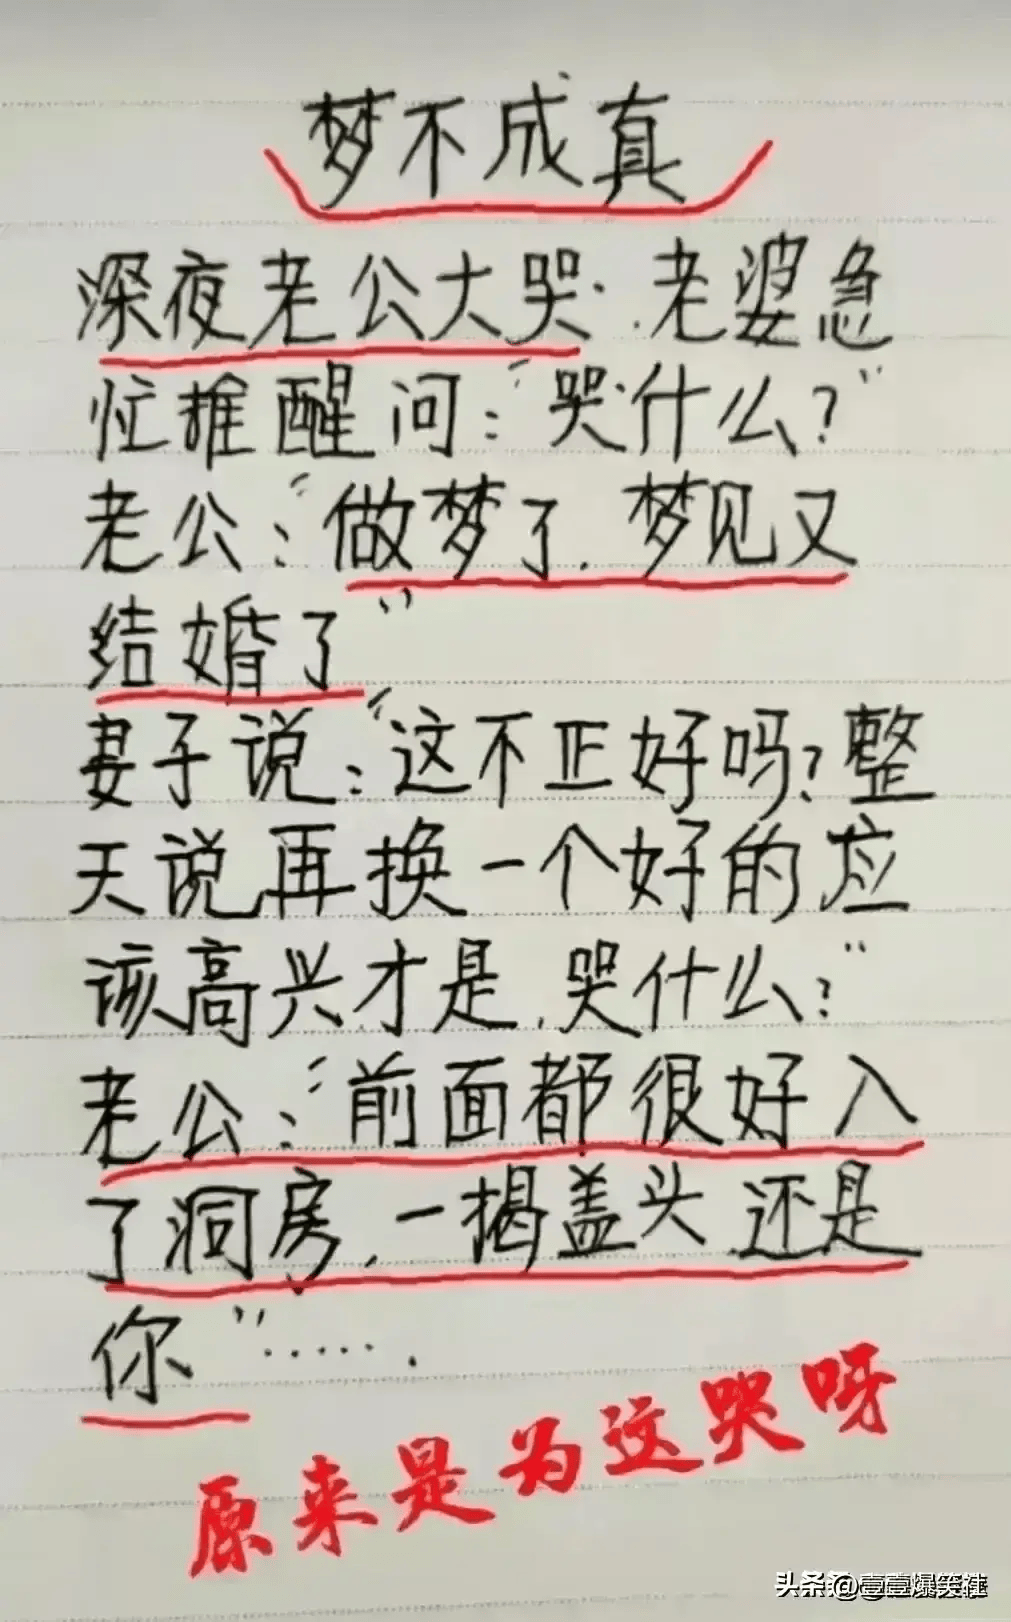 梦不成真
深夜老公大哭.老婆急
忙推醒问："哭什么?"
老公："做梦了.梦见又
结婚了"
妻子说："这不正好吗?整
天说再换一个好的应
该高兴才是.哭什么?"
老公："前面都很好入
了洞房.一揭盖头.还是
你"......
原来是为这哭呀
头条 @壹壹爆笑社